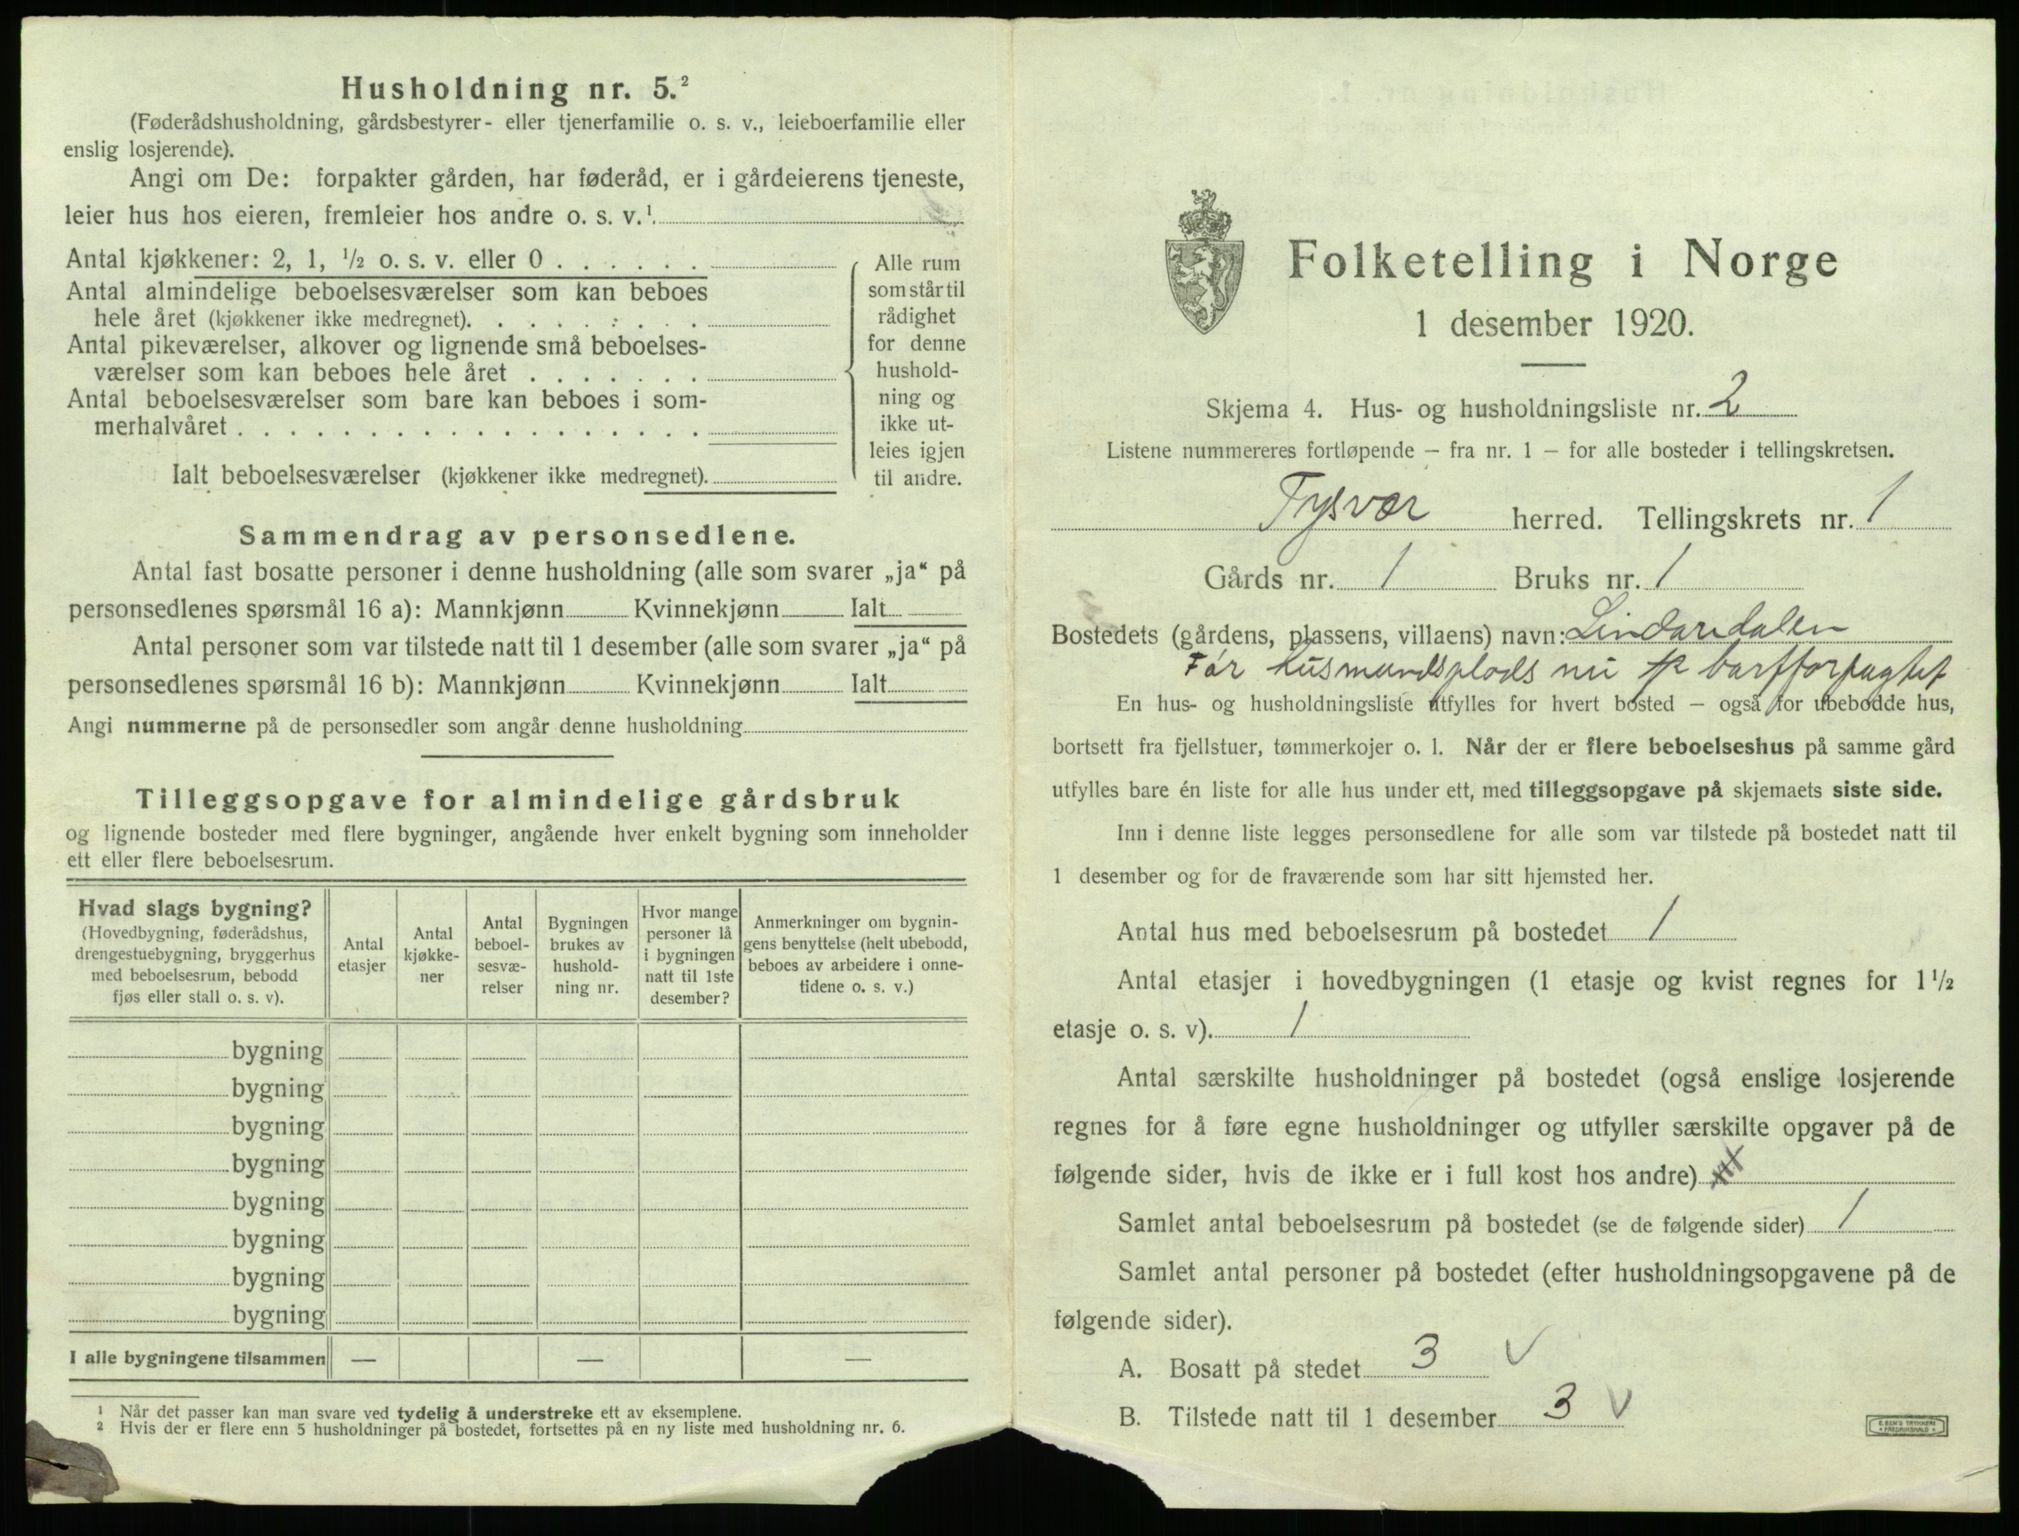 Husholdning nr. 5.²
(Føderådshusholdning, gårdsbestyrer- eller tjenerfamilie o. s. v., leieboerfamilie eller
enslig losjerende).
Angi om De: forpakter gården, har føderåd, er i gårdeierens tjeneste,
leier hus hos eieren, fremleier hos andre o. s. v.¹
Antal kjøkkener: 2, 1, ½ o. s. v. eller 0 . . . . . .
Antal almindelige beboelsesværelser som kan beboes
hele året (kjøkkener ikke medregnet). . . . . . . . .
Antal pikeværelser, alkover og lignende små beboelses-
værelser som kan beboes hele året . . . . . . .
Antal beboelsesværelser som bare kan beboes i som-
merhalvåret . . . . . . . . . . . . . . . . . .
Ialt beboelsesværelser (kjøkkener ikke medregnet).
Alle rum
som står til
rådighet
for denne
hushold-
ning og
ikke ut-
leies igjen
til andre.
Sammendrag av personsedlene.
Antal fast bosatte personer i denne husholdning (alle som svarer „ja“ på
personsedlenes spørsmål 16 a): Mannkjønn Kvinnekjønn Ialt
Antal personer som var tilstede natt til 1 desember (alle som svarer „ja“ på
personsedlenes spørsmål 16 b): Mannkjønn Kvinnekjønn Ialt
Angi nummerne på de personsedler som angår denne husholdning
Tilleggsopgave for almindelige gårdsbruk
og lignende bosteder med flere bygninger, angående hver enkelt bygning som inneholder
ett eller flere beboelsesrum.
Hvad slags bygning?
(Hovedbygning, føderådshus,
drengestuebygning, bryggerhus
med beboelsesrum, bebodd
fjøs eller stall o. s. v).
Antal
etasjer
Antal
kjøkke-
ner
Antal
beboel-
sesvæ-
relser
Bygningen
brukes av
hushold-
ning nr.
Hvor mange
personer lå
i bygningen
natt til 1ste
desember?
Anmerkninger om bygnin-
gens benyttelse (helt ubebodd,
beboes av arbeidere i onne-
tidene o. s. v.)
bygning
bygning
bygning
bygning
bygning
bygning
bygning
bygning
I alle bygningene tilsammen — — —
¹ Når det passer kan man svare ved tydelig å understreke ett av eksemplene.
² Hvis der er flere enn 5 husholdninger på bostedet, fortsettes på en ny liste med husholdning nr. 6.
Folketelling i Norge
1 desember 1920.
Skjema 4. Hus- og husholdningsliste nr. 2
Listene nummereres fortløpende – fra nr. 1 – for alle bosteder i tellingskretsen.
Tysvær herred. Tellingskrets nr. 1
Gårds nr. 1 Bruks nr. 1
Bostedets (gårdens, plassens, villaens) navn: Lindardalen
Før husmandsplads nu
En hus- og husholdningsliste utfylles for hvert bosted – også for ubebodde hus,
bortsett fra fjellstuer, tømmerkojer o. l. Når der er flere beboelseshus på samme gård
utfylles bare én liste for alle hus under ett, med tilleggsopgave på skjemaets siste side.
Inn i denne liste legges personsedlene for alle som var tilstede på bostedet natt til
1 desember og for de fraværende som har sitt hjemsted her.
Antal hus med beboelsesrum på bostedet 1
Antal etasjer i hovedbygningen (1 etasje og kvist regnes for 1½
etasje o. s. v). 1
Antal særskilte husholdninger på bostedet (også enslige losjerende
regnes for å føre egne husholdninger og utfyller særskilte opgaver på de
følgende sider, hvis de ikke er i full kost hos andre)
Samlet antal beboelsesrum på bostedet (se de følgende sider) 1
Samlet antal personer på bostedet (efter husholdningsopgavene på de
følgende sider).
A. Bosatt på stedet 3 V
B. Tilstede natt til 1 desember 3 V